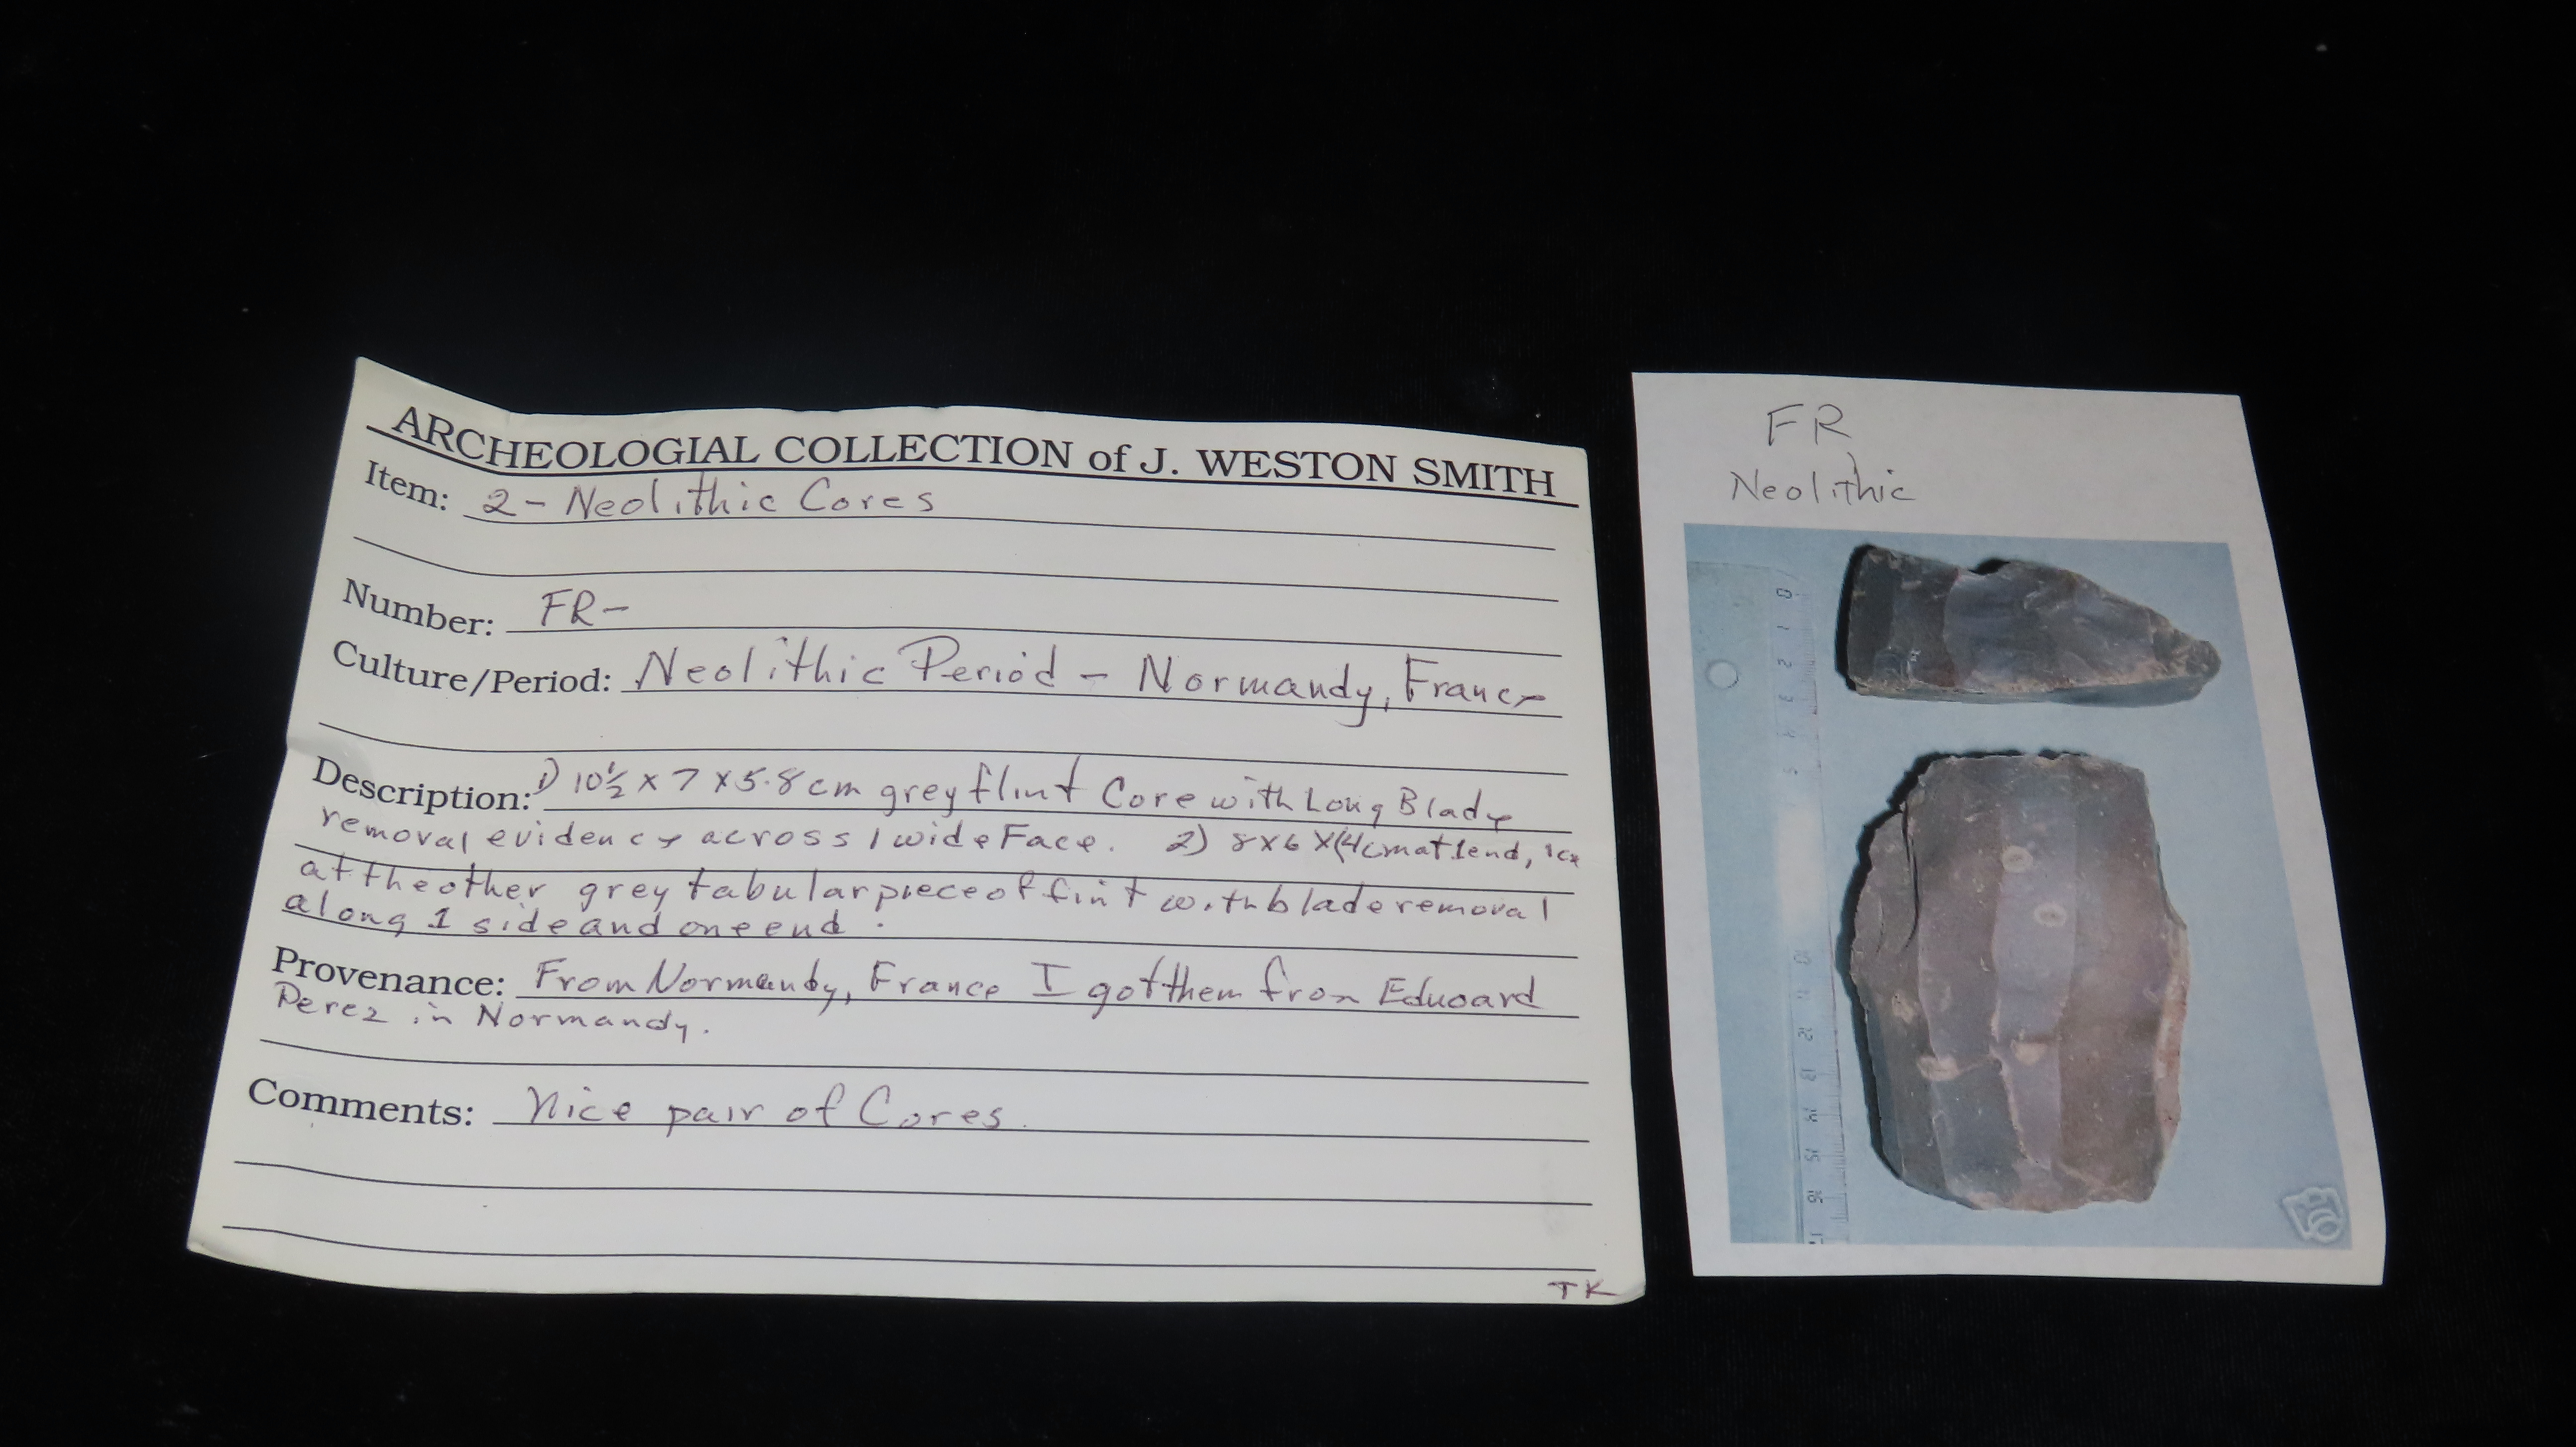 ARCHEOLOGIAL COLLECTION of J. WESTON SMITH
Item: 2 - Neolithic Cores
Number: FR-
Culture/Period: Neolithic Period - Normandy, France
Description: 1) 10½ x 7 x 5.8cm grey flint Core with Long Blade
removal evidence across 1 wide Face. 2) 8x6x(4cm at 1end, 1cm
at the other grey tabular piece of flint with blade removal
along 1 side and one end.
Provenance: From Normandy, France I got them from Eduoard
Perez in Normandy.
Comments: Nice pair of Cores.
TK
FR
Neolithic
0
1
2
3
4
5
10
11
12
13
14
15
16